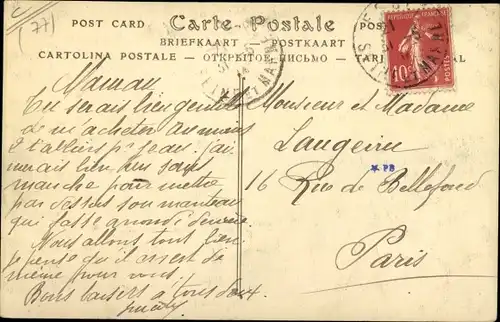 C
(77)
POST CARD Carte Postale POS
BRIEFKAART POSTKAART
CARTOLINA POSTALE — ОТКРЫТОЕ ПИСЬМО — TARJ AL
REPUBLIQUE FRANÇAISE
10c
POSTES
Maman
Tu serais bien gentille
de m'acheter au moins
2 tabliers pr Jean. J'ai
merais bien un sans
manche pour mettre
par dessus son manteau
qui fasse
Nous allons tous bien
je pense qu'il en est de
même pour vous.
Bons baisers à tous deux
Monsieur et Madame
Laugeiru
16 Rue de Bellefond
Paris
* PB